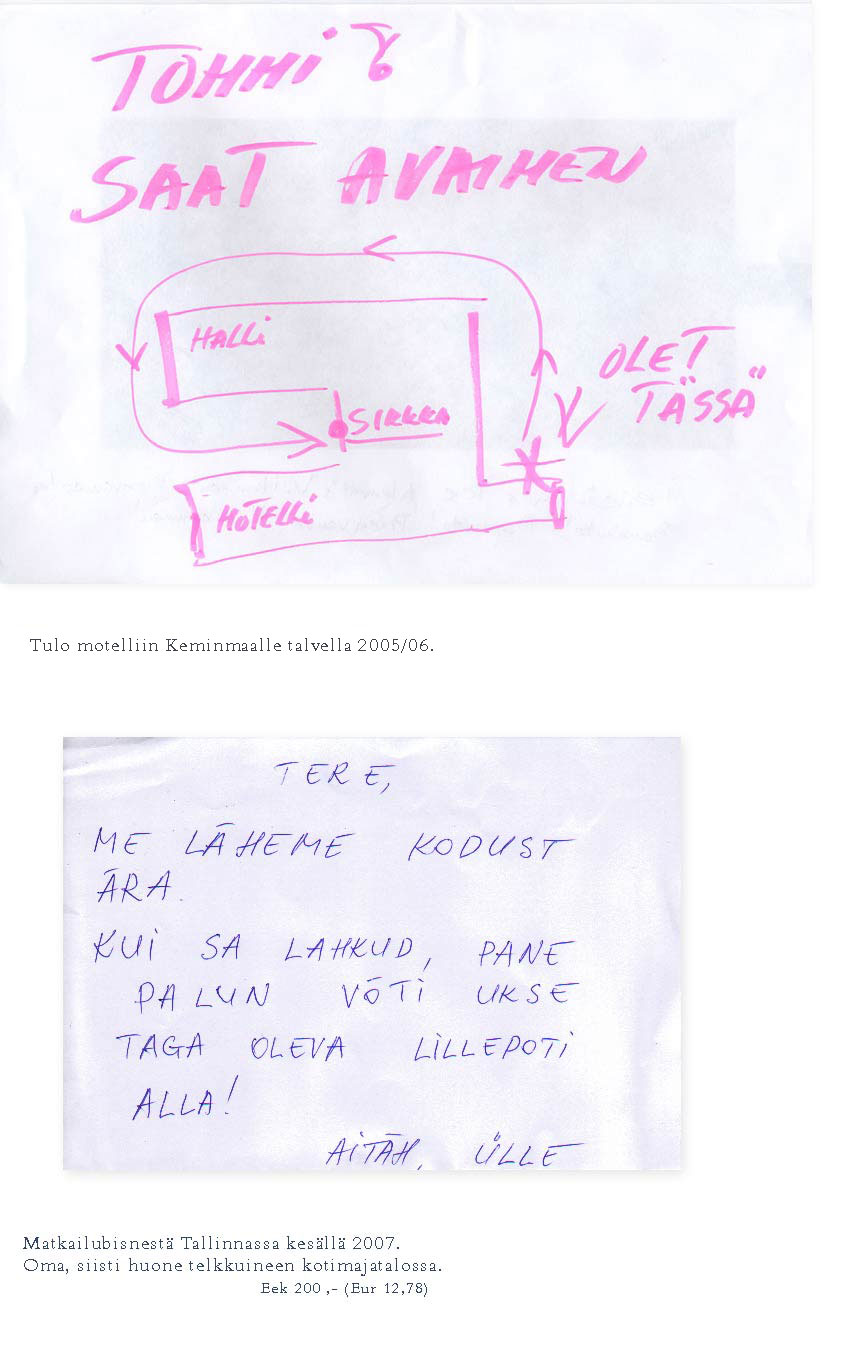 TOMMI
SAAT AVAIMEN
HALLI
OLET
TÄSSÄ
SIRKKA
HOTELLI
Tulo motelliin Keminmaalle talvella 2005/06.
TERE,
ME LÄHEME KODUST
ÄRA.
KUI SA LAHKUD, PANE
PALUN VÕTI UKSE
TAGA OLEVA LILLEPOTI
ALLA!
AITÄH, ÜLLE
Matkailubisnestä Tallinnassa kesällä 2007.
Oma, siisti huone telkkuineen kotimajatalossa.
Eek 200 ,- (Eur 12,78)